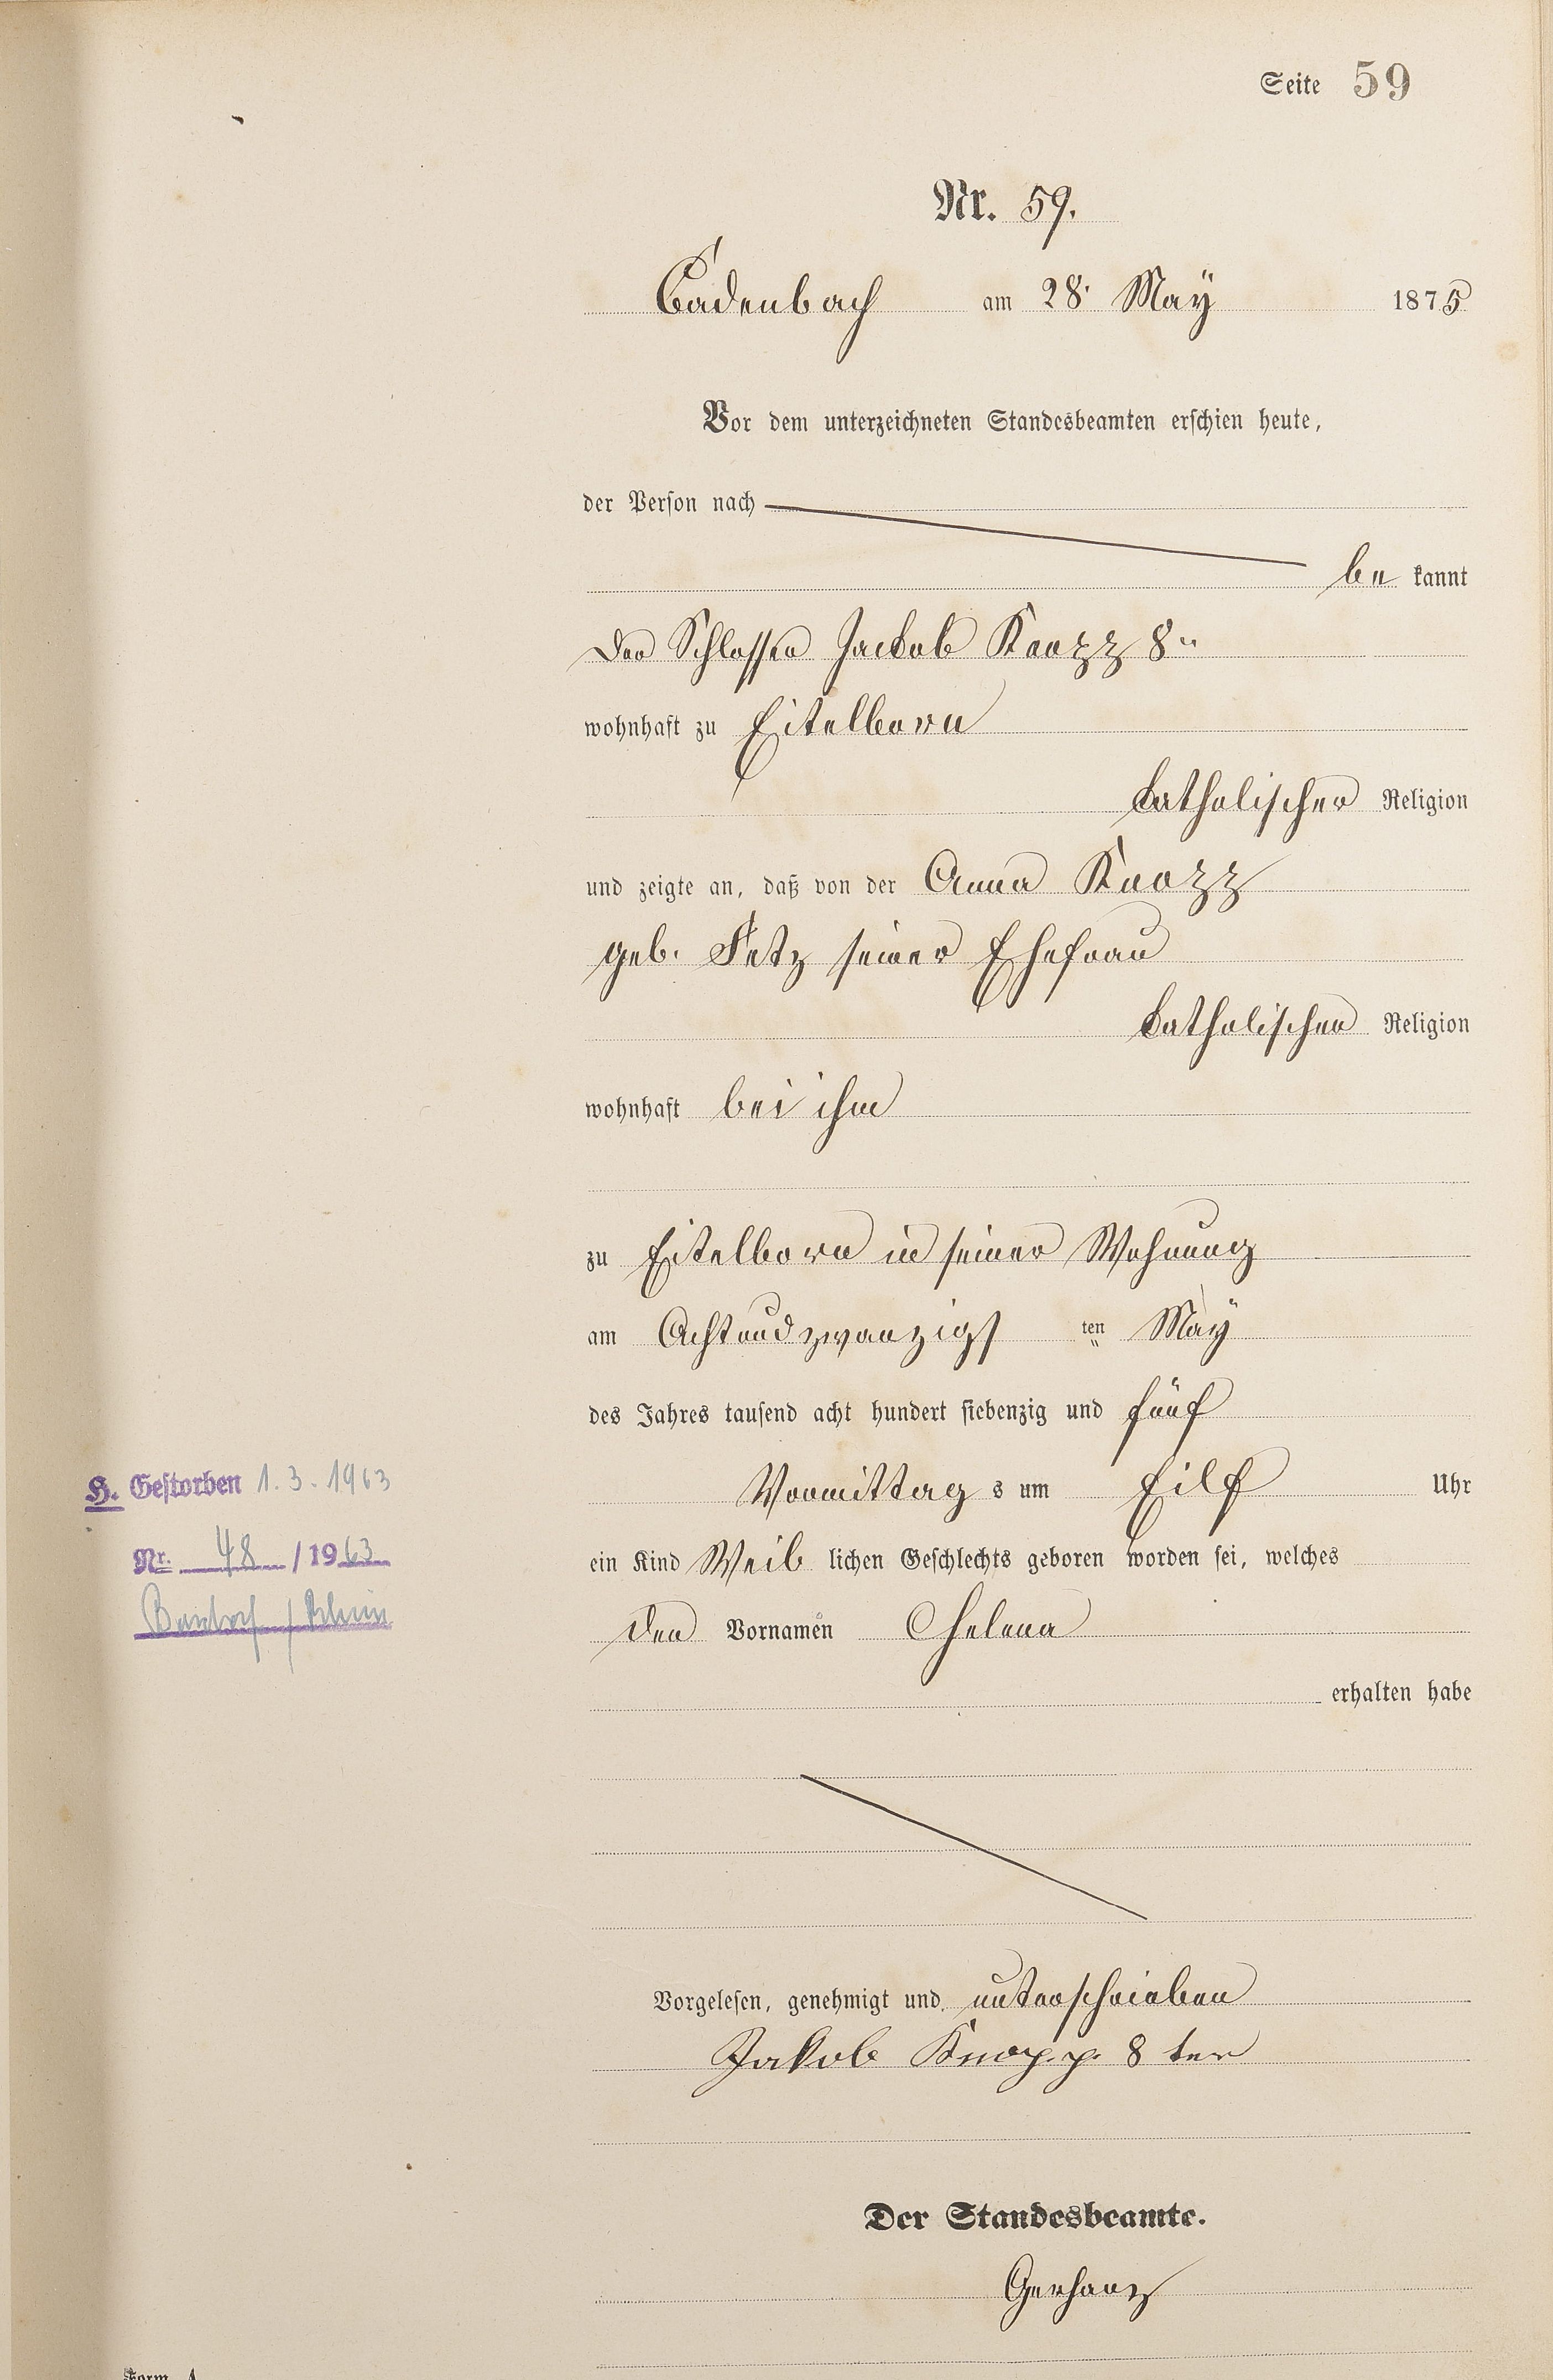 Seite 59
Nr. 59.
Cadenbach am 28. May 1875
Vor dem unterzeichneten Standesbeamten erschien heute,
der Person nach
be kannt
der Schlosser Jackob Knopp 8ter
wohnhaft zu Eitelborn
katholischer Religion
und zeigte an, daß von der Anna Knopp
geb. Fetz seiner Ehefrau
katholischer Religion
wohnhaft bei ihm
zu Eitelborn in seiner Wohnung
am Achtundzwanzigs ten May
des Jahres tausend acht hundert siebenzig und fünf
Vormittag s um Eilf Uhr
H. Gestorben 1.3.1963
Nr. 48 / 1963
Bendorf / Rhein
ein Kind Weib lichen Geschlechts geboren worden sei, welches
den Vornamen Helena
erhalten habe
Vorgelesen, genehmigt und unterschrieben
Jakob Knopp 8 ter
Der Standesbeamte.
Gerhanz
Form. A